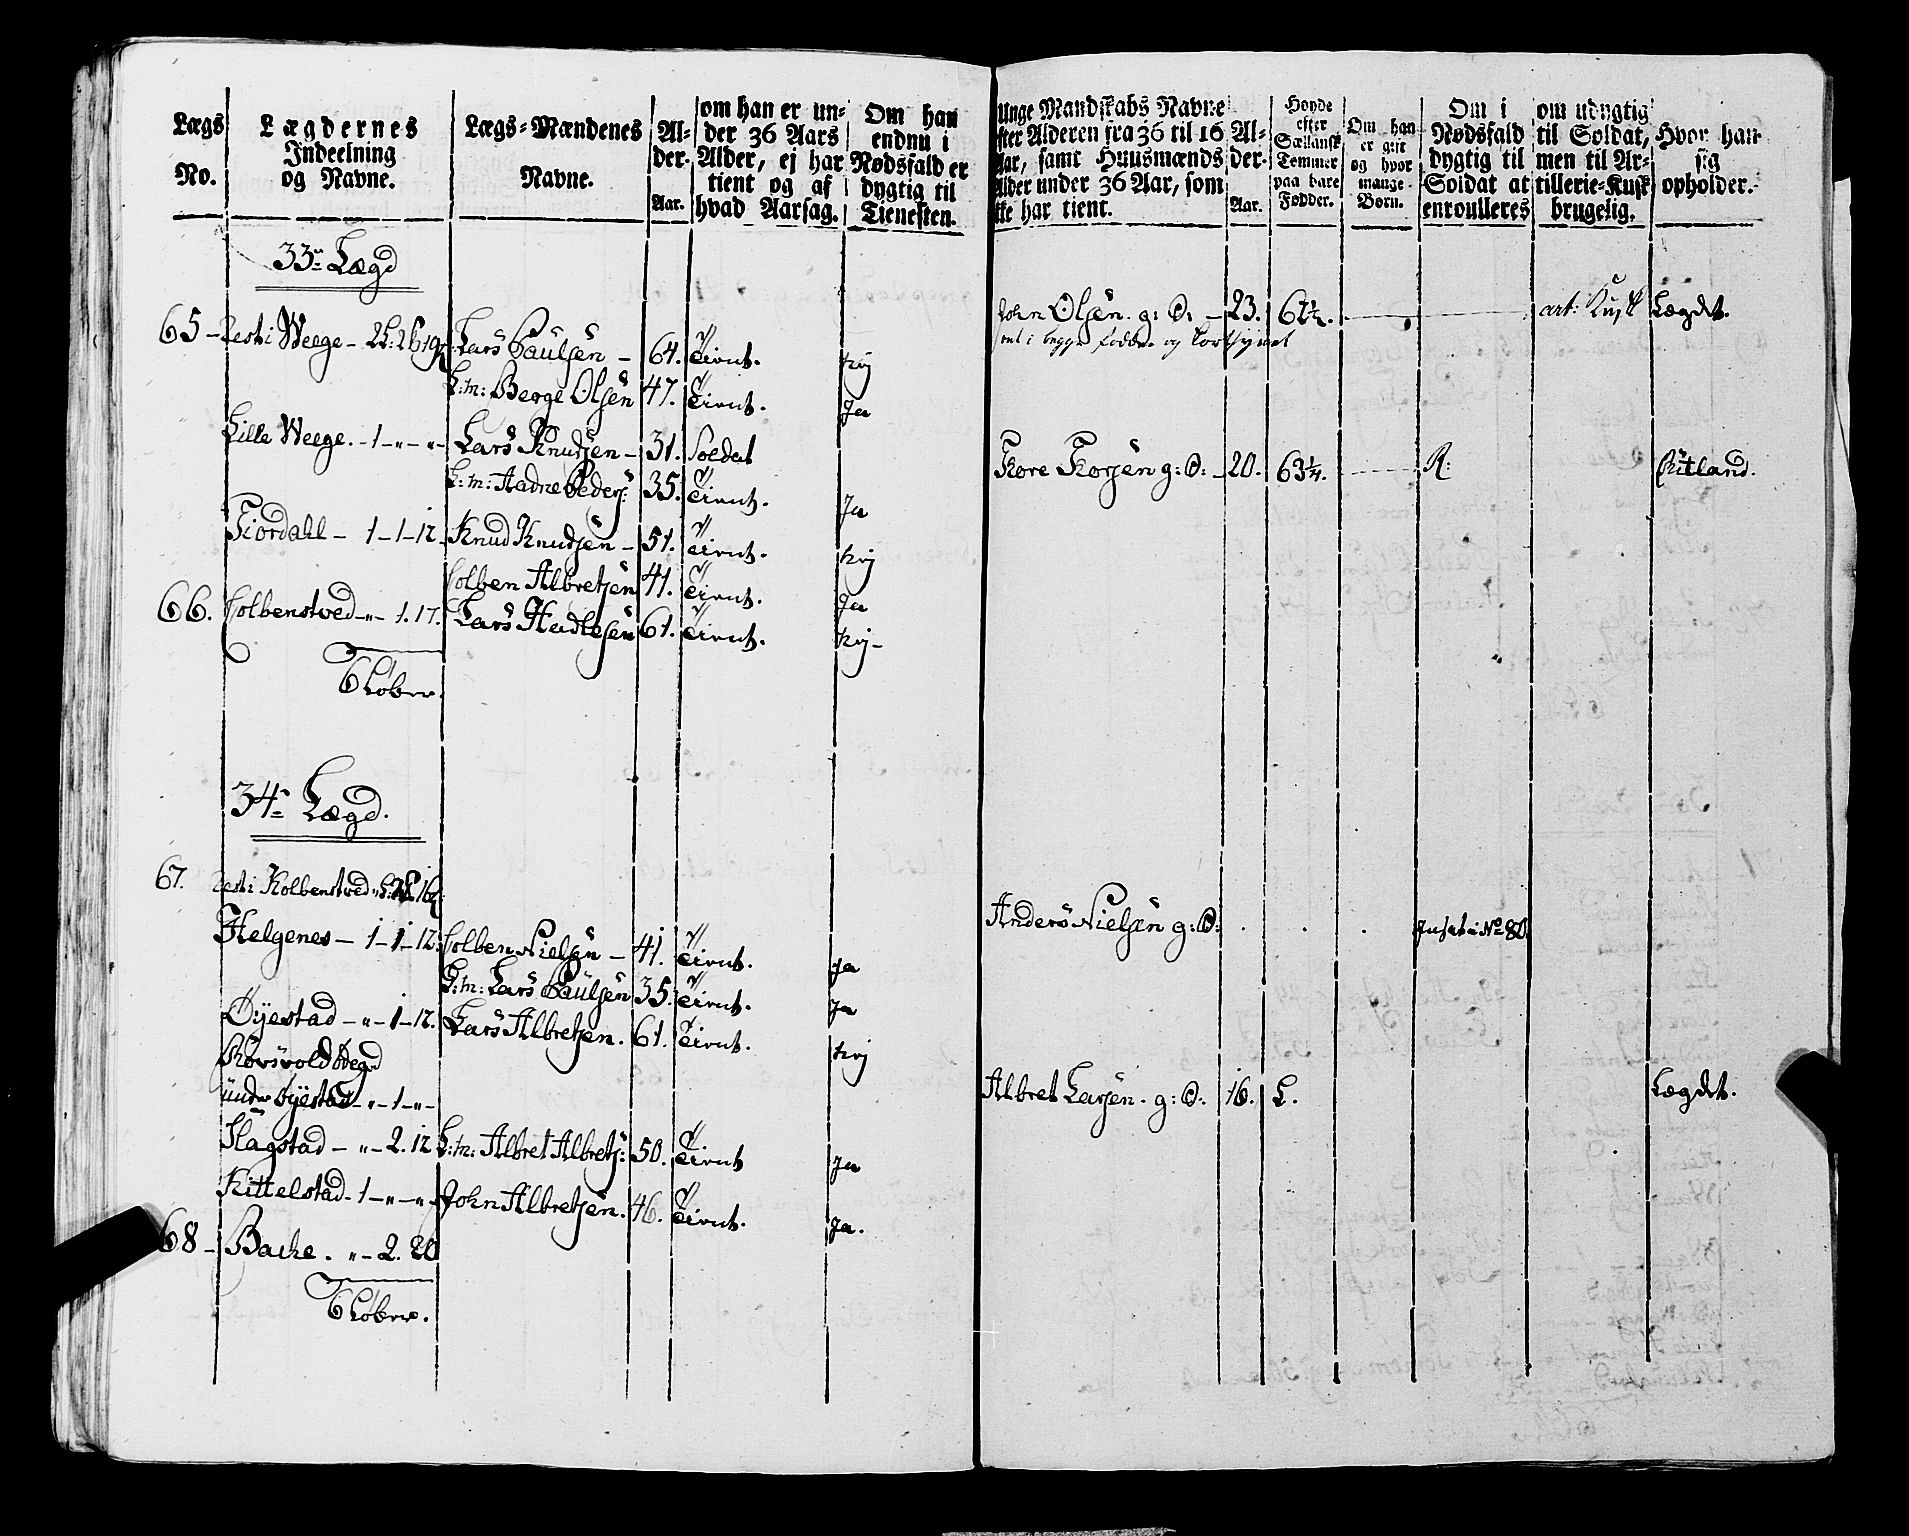 Lægs No.
Lægdernes Indeelning og Navne.
Lægs-Mændenes Navne.
Alder. Aar.
om han er under 36 Aars Alder, ej har tient og af hvad Aarsag.
Om han endnu i Nødsfald er dygtig til Tienesten.
unge Mandskabs Navne
efter Alderen fra 36 til 16
Aar, samt Huusmænds
Alder under 36 Aar, som
ikke har tient.
Alder. Aar.
Høyde efter Sællansk Tommer paa bare Fødder.
Om han er gift og hvor mange Børn.
Om i Nødsfald dygtig til Soldat at enroulleres
om udygtig til Soldat, men til Artillerie-Kusk brugelig.
Hvor han sig opholder.
33te Lægd
65 - Resti Weege - Lars Paulsen - 64. Tient. Nej
John Olsen. g: S: - 23. 62½. art: Kusk Lægdet.
i begge fødder og kortsynet
L:m: Berge Olsen 47. Tient. Ja
Lille Weege. - 1 - " - " - Lars Knudsen - 31. Soldat
Tore Torsen g: S: - 20. 63¼. R: Ritland.
L:m: Aadne Peders: 35. Tient. Ja
Fiordahl - 1 - 1 - 12. Knud Knudsen - 51. Tient. Nej
Kolben Albretsen 41. Tient. Ja
66. Kolbenstved - " - 1. 17. Lars Hadlesen 61. Tient. Nej -
6 Løber.
34te Lægd.
67. Resti Kolbenstved
Anders Nielsen g: S: Indsat i No 80.
Helgenes - 1 - 1 - 12. Kolben Nielsen - 41. Tient. Ja
L:m: Lars Paulsen 35. Tient. Ja
Øyestad - " - 1 - 12. Lars Albretsen. 61. Tient. Nej
Rørsvold ødegd
under Øyestad - " - 1 - " -
Albret Larsen. g: S. 16. L. Lægdet.
Hagstad - " - 2. 12 L:m: Albret Albrets: 50. Tient Ja
Kittelstad - 1 - " - " John Albretsen. 46. Tient. Ja.
68 - Backe. " - 2. 20
6 Løber.